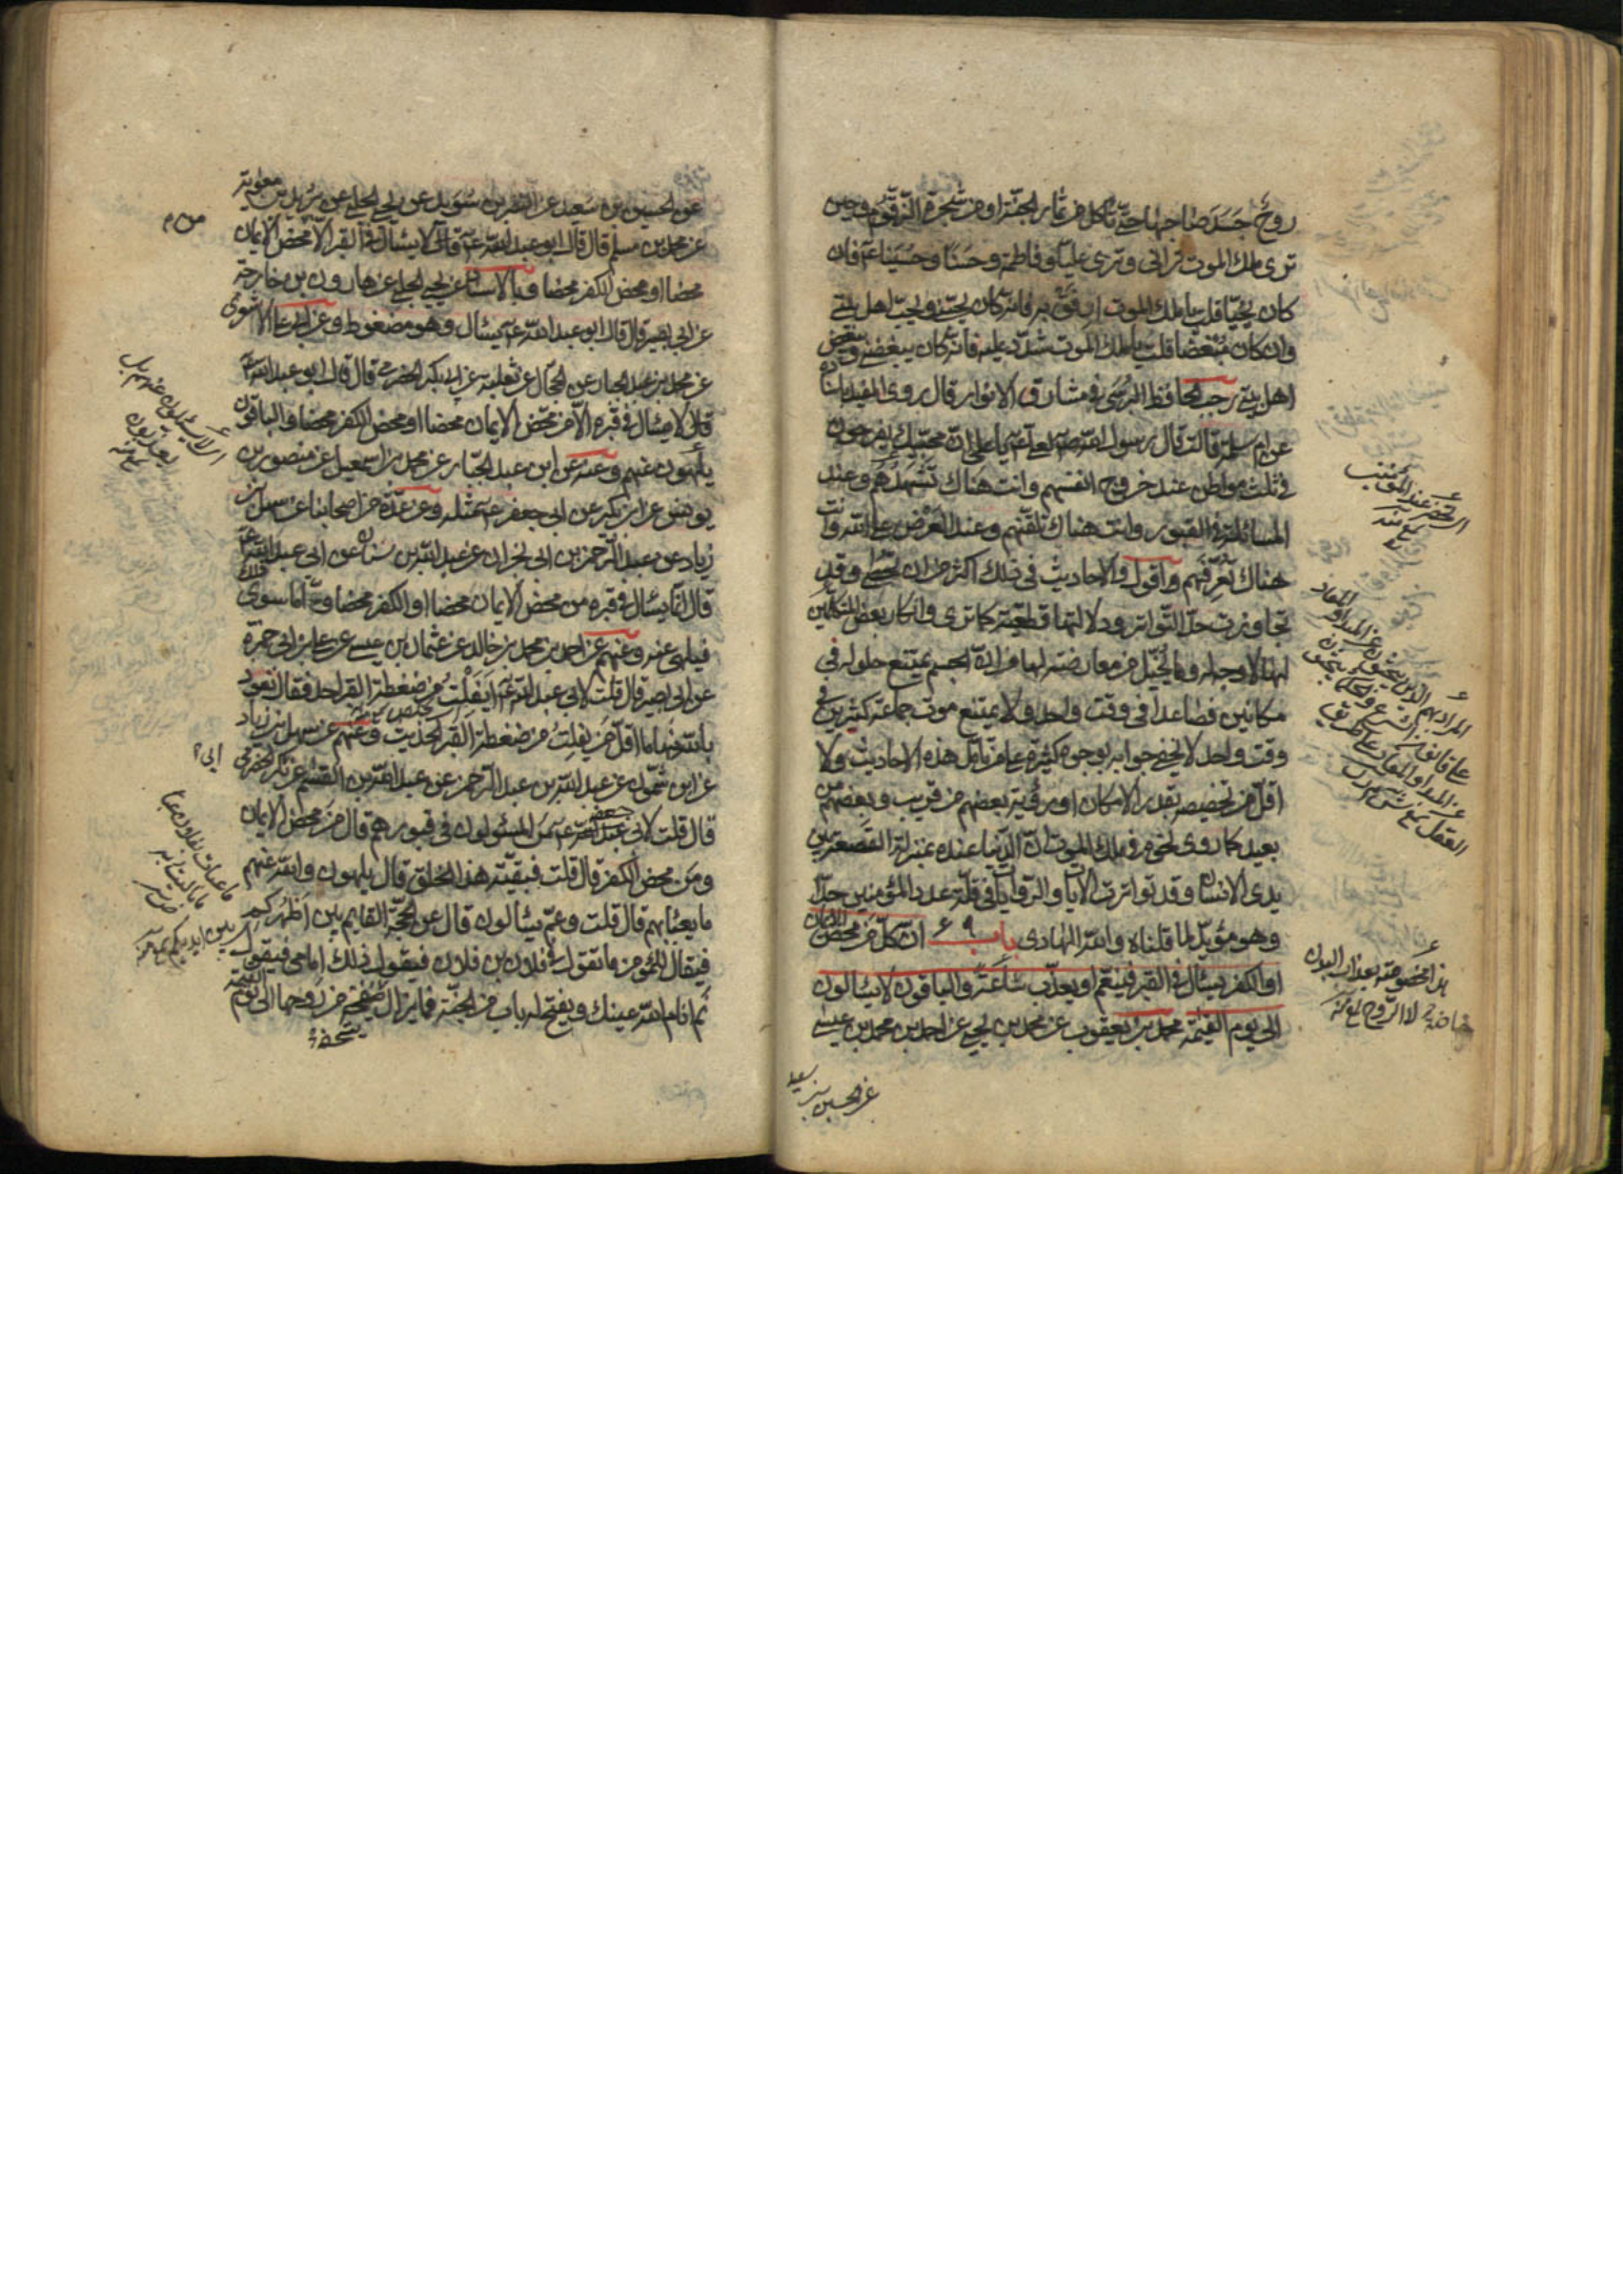 روح جسد صاحبها حتى تأكل من ثمار الجنة او من شجرة الزقوم وحين
ترى ملك الموت تراني وترى عليا وفاطمة وحسنا وحسينا ع فان
كان يحبنا قلت يا ملك الموت ارفق به فانه كان يحبني ويحب اهل بيتي
وان كان مبغضا قلت يا ملك الموت شدد عليه فانه كان يبغضني ويبغض
اهل بيتي رجب الحافظ البرسي في مشارق الانوار قال روى المفيد باسناده
عن ام سلمة قالت قال رسول الله ص لعلي ع يا علي ان محبيك يفرحون
في ثلث مواطن عند خروج انفسهم وانت هناك تشهدهم وعند
المسائلة في القبور وانت هناك تلقنهم وعند العرض على الله وانت
هناك تعرفهم واقول والاحاديث في ذلك اكثر من ان تحصى وقد
تجاوزت حد التواتر ودلالتها قطعية كما ترى وانكار بعض المتكلمين
لها لا وجه له وما يتخيل من معارضته لها من ان الجسم يمتنع حلوله في
مكانين فصاعدا في وقت واحد ولا يمتنع موت جماعة كثيرين في
وقت واحد لا يخفى جوابه بوجوه كثيرة على من تأمل هذه الاحاديث ولا
اقل من تخصيصه بقدر الامكان او رؤية بعضهم من قريب وبعضهم من
بعيد كما روى نحوه في ملك الموت ان الدنيا عنده بمنزلة القصعة بين
يدي الانسان وقد تواترت الايات والروايات في قلة عدد المؤمنين جدا
وهو مؤيد لما قلناه والله الهادي باب ٦٩ ان كل من محض الايمان
او الكفر يسئال في القبر فينعم او يعذب ساعة والباقون لا يسئالون
الى يوم القيمة محمد بن يعقوب عن محمد بن يحيى عن احمد بن محمد بن عيسى
عن الحسين بن سعيد
هذا مخصوصة بعذاب البدن
خاصة لا الروح
عن الحسين بن سعيد عن النضر بن سويد عن يحيى الحلبي عن بريد بن معوية
عن محمد بن مسلم قال قال ابو عبد الله ع قال لا يسئال في القبر الا من محض الايمان
محضا او محض الكفر محضا وبالاسناد عن يحيى الحلبي عن هارون بن خارجة
عن ابي بصير قال قال ابو عبد الله ع يسئال وهو مضغوط وعن ابي علي الاشعري
عن محمد بن عبد الجبار عن الحجال عن ثعلبة عن ابي بكر الحضرمي قال قال ابو عبد الله ع
قال لا يسئال في قبره الا من محض الايمان محضا او محض الكفر محضا والباقون
يلهون عنهم وعنه عن ابن عبد الجبار عن محمد بن اسمعيل عن منصور بن
يونس عن ابن بكير عن ابي جعفر ع مثله وعن عدة من اصحابنا عن سهل بن
زياد عن عبد الرحمن بن ابي نجران عن عبد الله بن سنان عن ابي عبد الله ع
قال انما يسئال في قبره من محض الايمان محضا او الكفر محضا واما سوى ذلك
فيلهى عنه وعنهم عن احمد بن محمد بن خالد عن عثمان بن عيسى عن علي بن ابي حمزة
عن ابي بصير قال قلت لابي عبد الله ع ايفلت من ضغطة القبر احد فقال نعوذ
بالله منها ما اقل من يفلت من ضغطة القبر الحديث وعنهم عن سهل بن زياد
عن ابن شمون عن عبد الله بن عبد الرحمن عن عبد الله بن القسم عن بكر الحضرمي
قال قلت لابي جعفر ع من المسئولون في قبورهم قال من محض الايمان
ومن محض الكفر قال قلت فبقية هذا الخلق قال يلهون والله عنهم
ما يعبأ بهم قال قلت وعم يسئالون قال عن الحجة القايم بين اظهركم
فيقال للمؤمن ما تقول في فلان بن فلان فيقول ذلك امامي فيقول
نم انام الله عينك ويفتح له باب من الجنة فما يزال يتحفه من روحها الى يوم القيمة
ابي
اي لا يسئلون عنهم بل